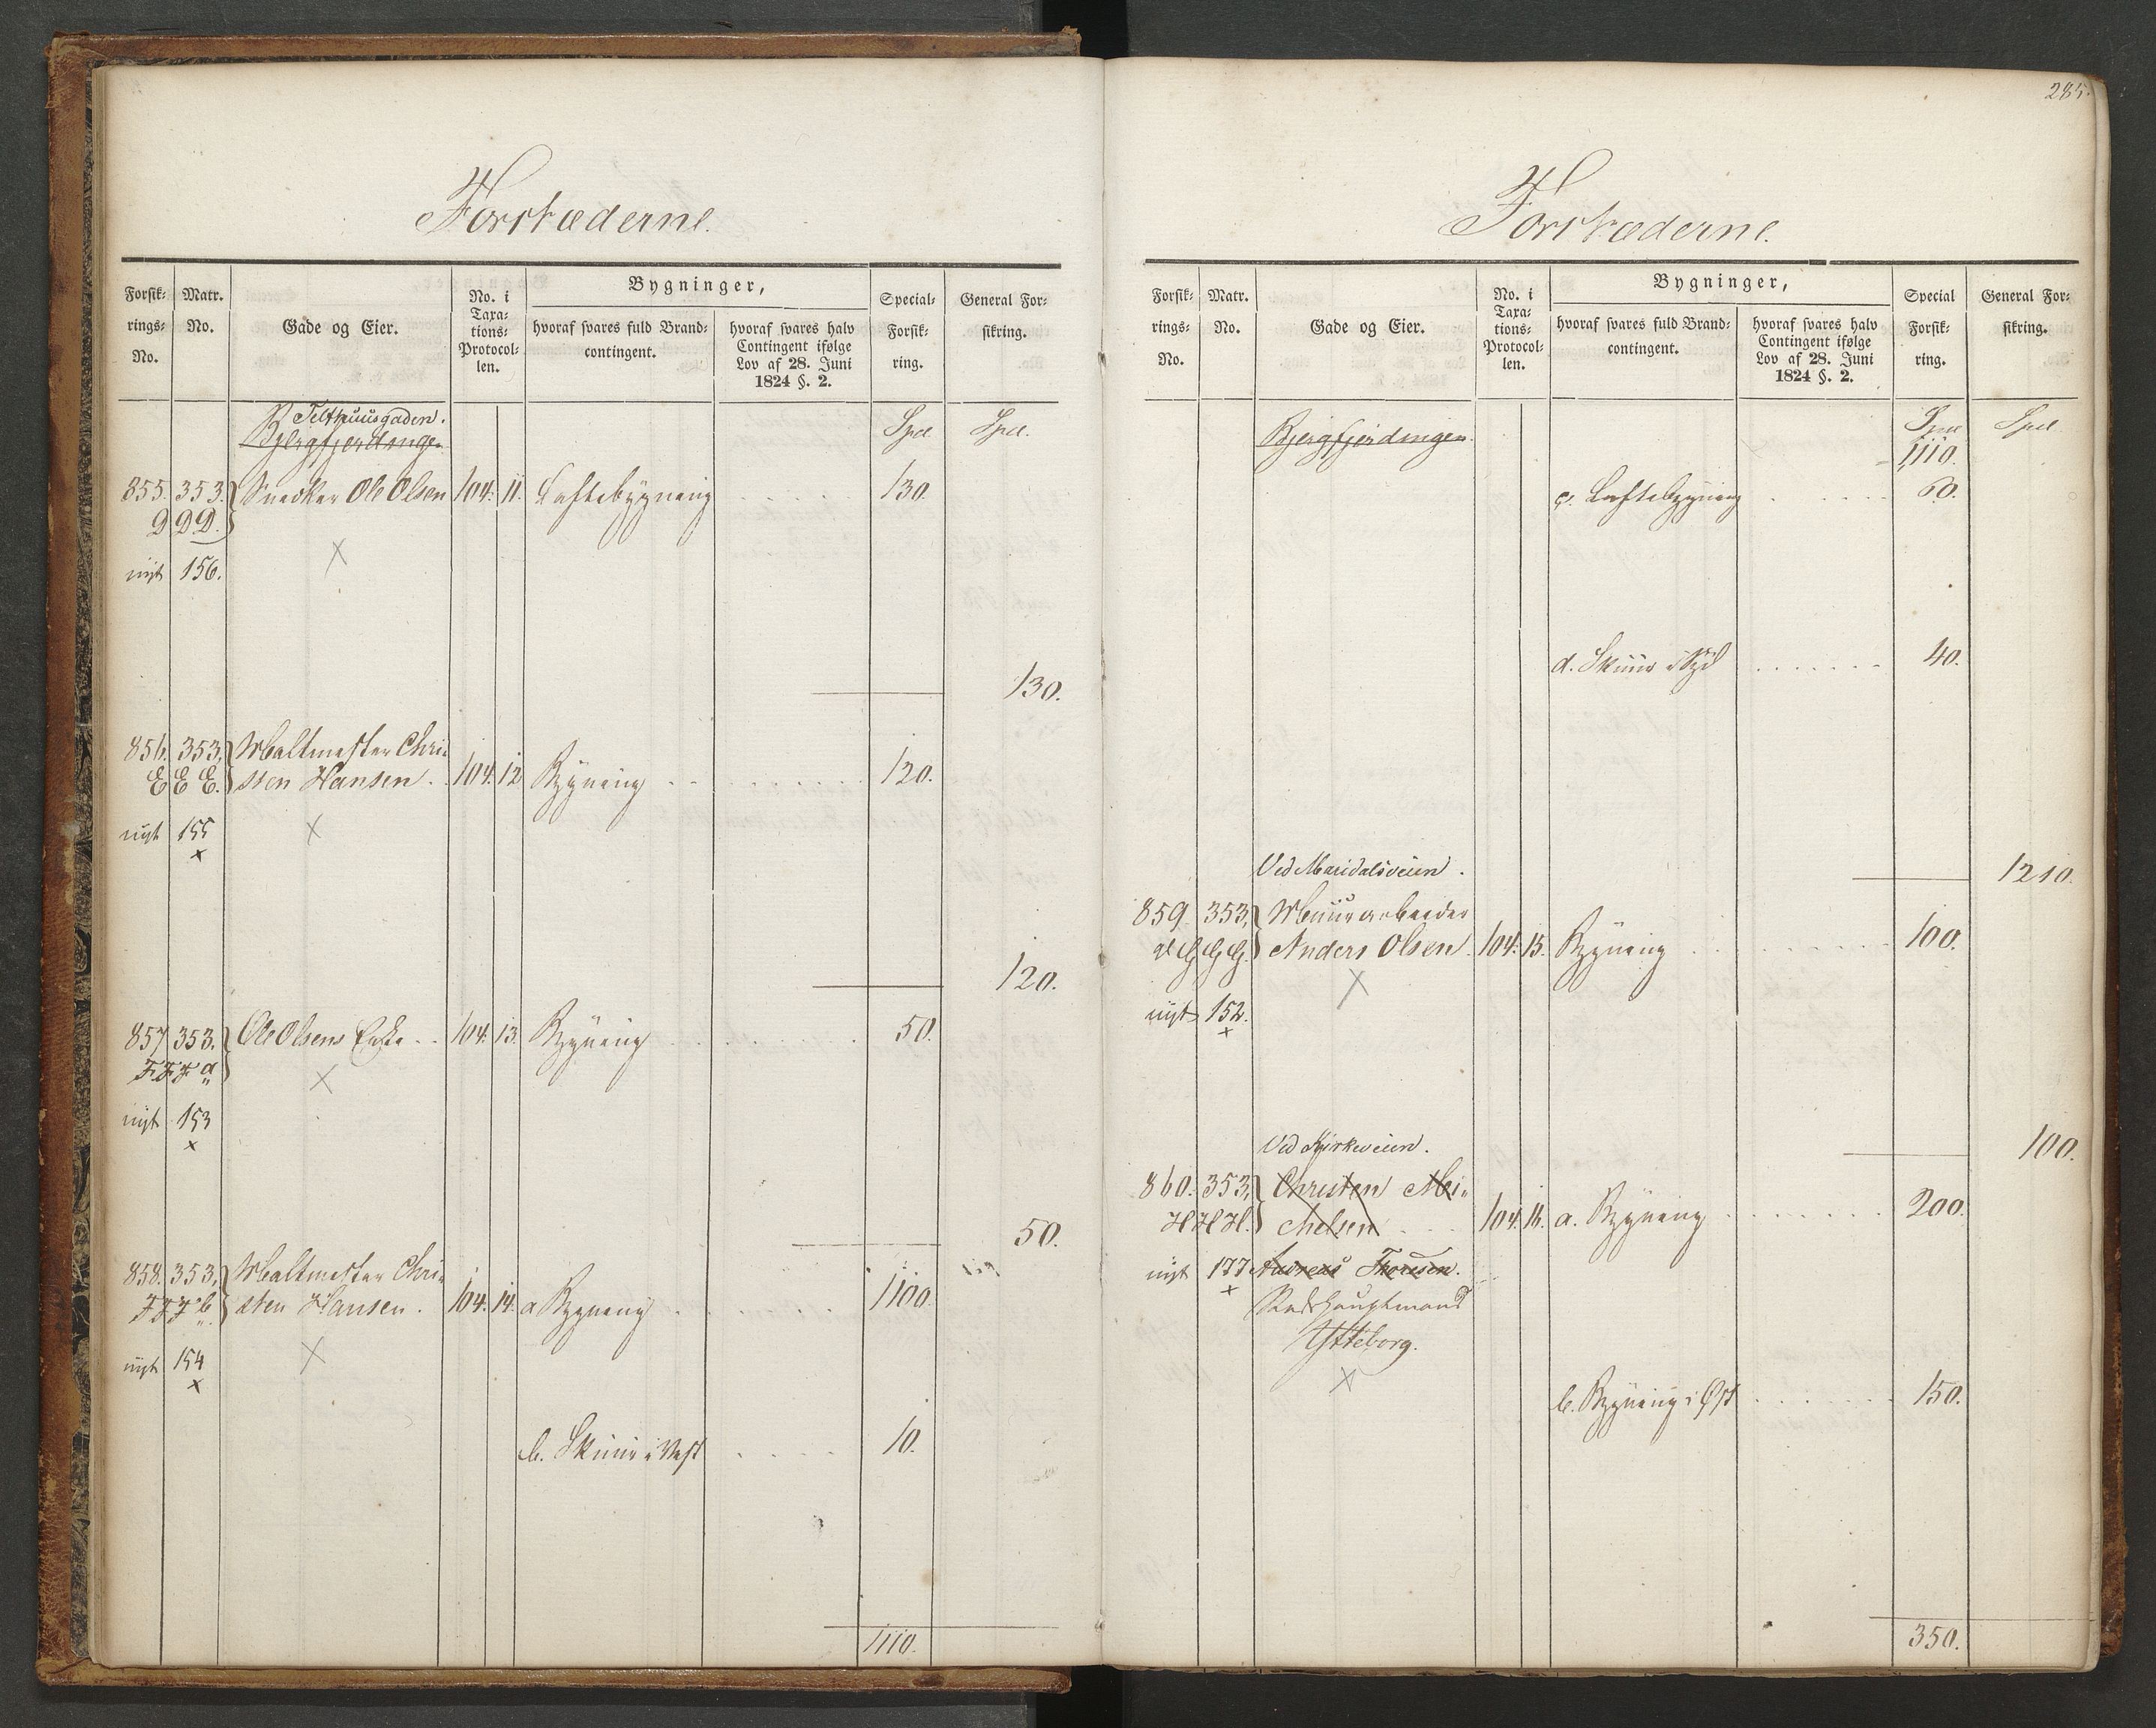 Forstæderne.
Forsik-
rings-
No.
Matr.
No.
Gade og Eier.
No. i
Taxa-
tions-
Protocol-
len.
Bygninger,
hvoraf svares fuld Brand-
contingent.
hvoraf svares halv
Contingent ifølge
Lov af 28. Juni
1824 §. 2.
Special-
Forsik-
ring.
General For-
sikring.
Telthuusgaden.
Bjergfjerdingen
Spd Spd.
855. 353. Snedker Ole Olsen 104. 11. Laftebygning 130.
DDD.
nyt 156.
130.
856. 353, Maltmester Chri-
EEE. sten Hansen. 104. 12 Bygning 120.
nyt 155
x
120.
857 353. Ole Olsens Enke 104. 13. Bygning 50.
FFF a
nyt 153
x
50.
858. 353, Maltmester Chri-
FFF b. sten Hansen. 104. 14. a Bygning 1100.
nyt 154
x
b. Skuur i Vest 10.
1110.
285.
Forstæderne.
Forsik-
rings-
No.
Matr.
No.
Gade og Eier.
No. i
Taxa-
tions-
Protocol-
len.
Bygninger,
hvoraf svares fuld Brand-
contingent.
hvoraf svares halv
Contingent ifølge
Lov af 28. Juni
1824 §. 2.
Special
Forsik-
ring.
General For-
sikring.
Bjergfjerdingen. Spd Spd
1110.
c. Laftebygning 60.
d. Skuur i Syd 40.
1210.
Ved Maridalsveien.
859. 353, Muurarbeider
GGG. Anders Olsen. 104. 15. Bygning 100.
nyt 152.
x
100.
Ved Kirkeveien.
860. 353, Christen Mi-
HHH. chelsen 104. 16. a. Bygning 200.
nyt 177 Andreas Thoresen.
x
Stadshauptmand
Ytteborg.
b. Bygning i Øst 150.
350.